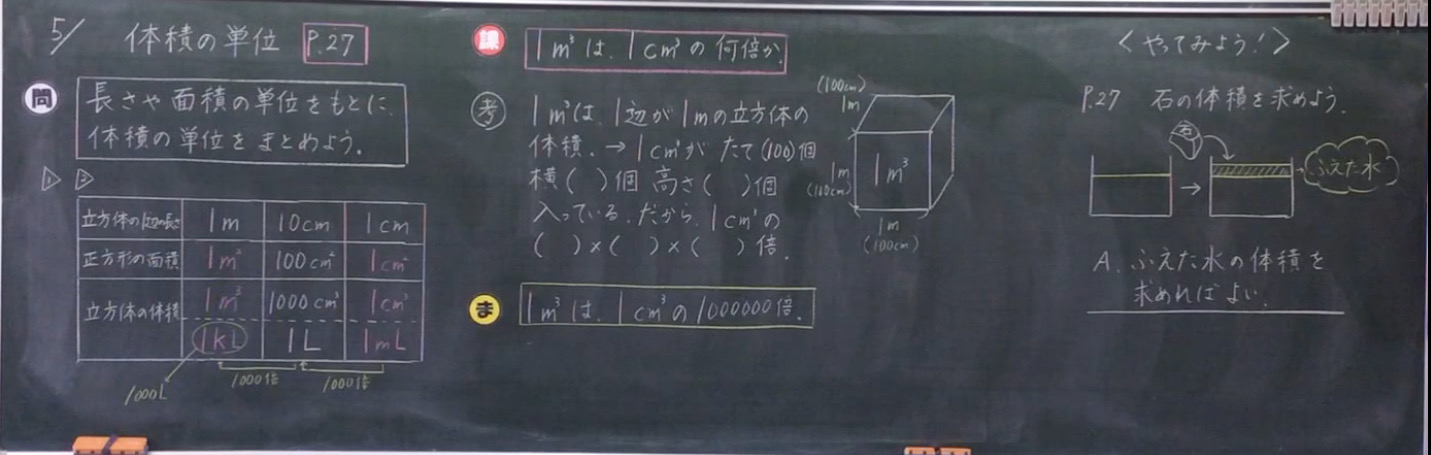 5/
体積の単位 P.27
問
長さや面積の単位をもとに、
体積の単位をまとめよう。
1 2
立方体の1辺の長さ 1m 10cm 1cm
正方形の面積 1m² 100cm² 1cm²
立方体の体積 1m³ 1000cm³ 1cm³
1kL 1L 1mL
1000L 1000倍 1000倍
課
1m³は、1cm³の何倍か。
考
1m³は、1辺が1mの立方体の
体積。→1cm³がたて(100)個
横( )個 高さ( )個
入っている。だから、1cm³の
( )×( )×( )倍。
(100cm)
1m
1m
(100cm)
1m³
1m
(100cm)
ま
1m³は、1cm³の1000000倍。
<やってみよう!>
P.27 石の体積を求めよう。
石
→
ふえた水
A. ふえた水の体積を
求めればよい。